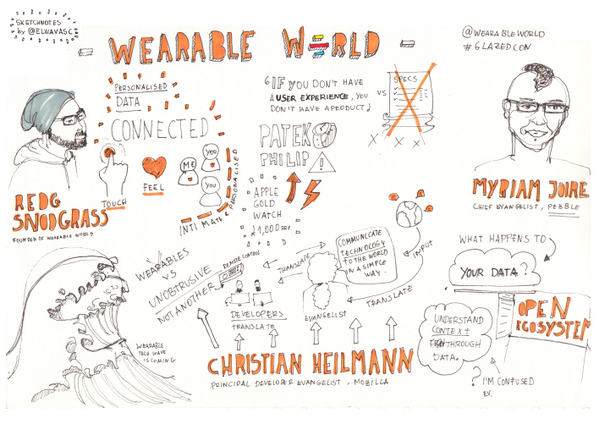 SKETCHNOTES
by @ELUAVASC
- WEARABLE WORLD -
@WEARABLEWORLD
#GLAZEDCON
PERSONALISED
DATA
CONNECTED
TOUCH
FEEL
ME
YOU
YOU
INTIMATE
PERSONALISED
REDG
SNODGRASS
FOUNDER OF WEARABLE WORLD
"IF YOU DON'T HAVE
A USER EXPERIENCE, YOU
DON'T HAVE A PRODUCT"
VS
SPECS
X X X X
PATEK
PHILIP
APPLE
GOLD
WATCH
MYRIAM JOIRE
CHIEF EVANGELIST, PEBBLE
WEARABLES
VS
UNOBTRUSIVE
NOT ANOTHER
REMOTE CONTROL
WEARABLE
TECH WAVE
IS COMING
DEVELOPERS
TRANSLATE
TRANSLATE
EVANGELIST
COMMUNICATE
TECHNOLOGY
TO THE WORLD
IN A SIMPLE
WAY.
INPUT
TRANSLATE
CHRISTIAN HEILMANN
PRINCIPAL DEVELOPER EVANGELIST, MOZILLA
WHAT HAPPENS TO
YOUR DATA?
OPEN
ECOSYSTEM
UNDERSTAND
CONTEXT
THROUGH
DATA.
? I'M CONFUSED